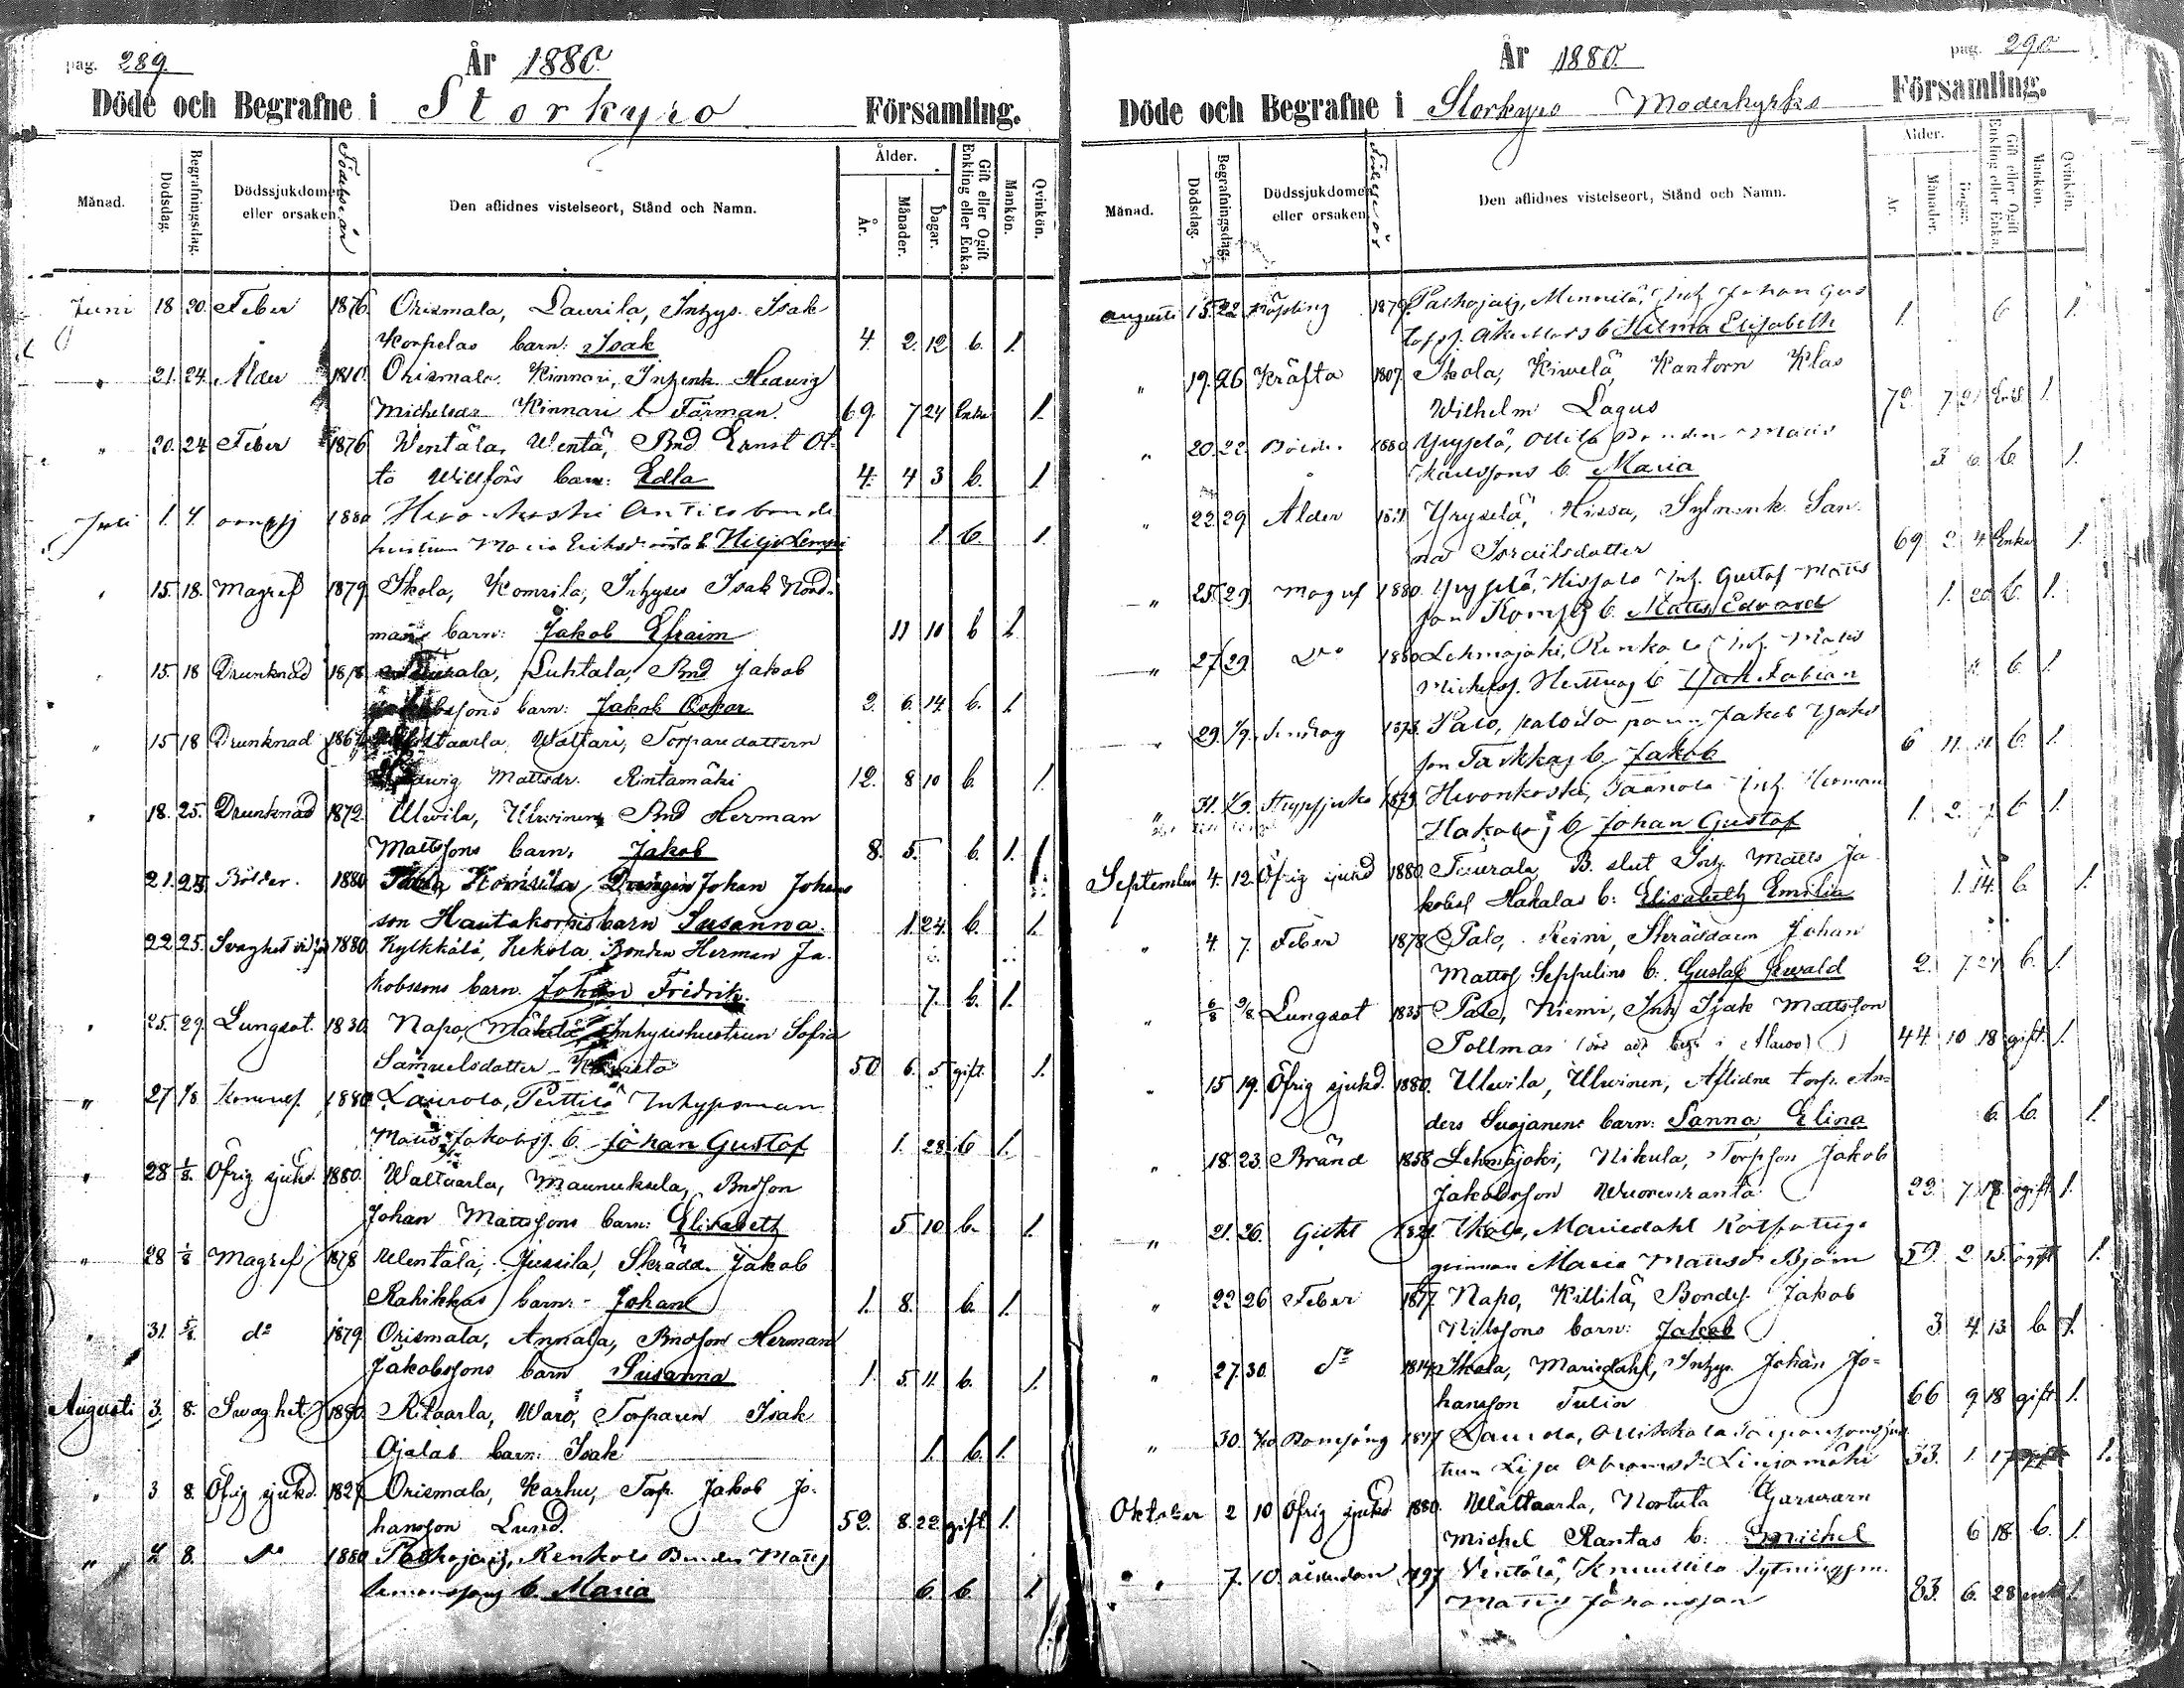 pag. 289.
År 1880.
Döde och Begrafne i Storkyro Församling.
Månad.
Dödsdag.
Begrafningsdag.
Dödssjukdomen eller orsaken.
Födelseår
Den aflidnes vistelseort, Stånd och Namn.
Ålder.
År.
Månader.
Dagar.
Gift eller Ogift Enkling eller Enka.
Mankön.
Qvinkön.
Juni 18 20. Feber 1876. Orismala, Laurila, Inhys. Isak
Korpelas barn: Isak 4. 2. 12 b. 1.
" 21. 24. Ålder 1810. Orismala, Kinnari, Inh.enk. Hedvig
Michelsdr Kinnari Färman. 69. 7 24 Enka 1.
" 20. 24 Feber 1876 Wentälä, Wentä, Bnd Ernst Ot-
to Willförs barn: Edla 4. 4 3 b. 1.
Juli 1. 4. 1880
hustrun Maria Eriksdr 1. b. 1.
" 15. 18. Magref 1879 Ikola, Komsila, Inhyses Isak Nord-
mans barn: Jakob Efraim 11 10 b 1.
" 15. 18 Drunknad 1878 Tuurala, Luhtala, Bnd Jakob
Jakobssons barn: Jakob Oskar 2. 6. 14. b. 1.
" 15 18 Drunknad 1867 Waltaarla, Waltari, Torparedottern
Hedwig Mattsdr. Rintamäki 12. 8 10 b. 1.
" 18. 25. Drunknad 1872. Ulwila, Ulwinen, Bnd Herman
Mattssons barn: Jakob 8. 5. b. 1.
21. 25. Bölder. 1880 Ikola Komsila Drängen Johan Johans
son Hautakorpis barn Susanna. 1. 24. b. 1.
22 25. Svaghet 1880. Kylkkälä, Kekola, Bonden Herman Ja-
kobssons barn. Johan Fridrik. 7. b. 1.
" 25. 29. Lungsot. 1830. Napo, Mäkelä, Inhyseshustrun Sofia
Samuelsdotter 50. 6. 5 gift. 1.
" 27 1/8 1880 Laurola, Perttilä Inhysman
Matts Jakobss. b. Johan Gustaf 1. 28 b 1.
" 28 1/8. Öfrig sjukd. 1880. Waltaarla, Maunuksela, Bndson
Johan Mattssons barn: Elisabeth 5 10 b. 1.
" 28 1/8 Magref 1878 Wentälä, Jussila, Skrädd. Jakob
Rahikkas barn: Johan 1. 8. b. 1.
" 31. 5/8. do 1879. Orismala, Annala, Bndson Herman
Jakobssons barn Susanna 1. 5. 11. b. 1.
Augusti 3. 8. Swaghet 1880. Ritaarla, Waro, Torparen Isak
Ojalas barn: Isak 1. b. 1.
" 3 8. Öfrig sjukd. 1827 Orismala, Karhu, Torp. Jakob Jo-
hansson Lund. 52. 8. 22 gift 1.
" 8. do 1880 Palhojais, Renkola Bonden Matts
Simonssons b. Maria 6. b. 1
pag. 290
År 1880.
Döde och Begrafne i Storkyro Moderkyrks Församling.
Månad.
Dödsdag.
Begrafningsdag.
Dödssjukdomen eller orsaken.
Födelseår
Den aflidnes vistelseort, Stånd och Namn.
Ålder.
År.
Månader.
Dagar.
Gift eller Ogift Enkling eller Enka.
Mankön.
Qvinkön.
augusti 15. 22 1879. Palhojais, Minnilä, Inh. Johan Gus
Hilma Elisabeth 1. 6 1.
" 19. 26 Kräfta 1807. Ikola, Kiwelä, Kantorn Klas
Wilhelm Lagus 72. 7. 21 Enkl 1.
" 20. 22. Bölder 1880. Yryselä, Ollila Bonden Matts
Karlssons b. Maria 3 6 b. 1.
" 22 29 Ålder 1811 Yryselä, Hissa, Sytn.enk. San-
na Israelsdotter 69 2 4 Enka 1.
" 25. 29. Magref 1880. Yryselä, Hissala Inh. Gustaf Matts
son b. Matts Edvard 1. 20 b. 1.
" 27 29. Do 1880 Lehmäjoki, Renkola Inh. Matts
Michelss. b Isak Fabian b. 1.
" 29. 1/9. 1873. Palo, Jakob Isaks
son Takkas b. Jakob 6 11. 11 b. 1.
" 31. 1/9. 1879 Hevonkoski, Jaanola Inh. Herman
Hakalas b Johan Gustaf 1. 2. b 1.
September 4. 12. Öfrig sjukd 1880. Tuurala, B. slut Inh. Matts Ja-
kobss Hakalas b: Elisabeth Emilia 1. 14. b. 1.
" 4. 7. Feber 1878 Palo, Reini, Skräddaren Johan
Mattss Seppelins b: Gustaf Ewald 2. 7. 27 b. 1.
" 6/8 9/8. Lungsot 1835 Palo, Niemi, Inh Isak Mattsson
Tollmas 44. 10 18 gift. 1.
" 15 19. Öfrig sjukd. 1880. Ulwila, Ulwinen, Aflidne torp. An-
ders Susjanens barn: Sanna Elina 6. b. 1.
" 18. 23. Bränd 1858 Lehmäjoki, Nikula, Torpson Jakob
Jakobsson Wuorenranta 22. 7. 18. ogift 1.
" 21. 26. Gickt 1821. Ikola, Mariedahl Rotfattige
qvinnan Maria Mattsdr Björn 59. 2 15. ogift 1.
" 22 26 Feber 1877. Napo, Killilä, Bondes. Jakob
Nilssons barn: Jakob 3 4. 13. b. 1.
" 27. 30. do 1814. Ikola, Mariedahl, Inhys. Johan Jo-
hansson Tulin 66 9 18 gift 1.
" 30. Barnsäng 1847 Laurola, Ollikkala
trun Lisa Linjamäki 33. 1 17 1.
Oktober 2 10 Öfrig sjukd 1880. Waltaarla, Nortuta Garvarn
Michel Rantas b: Michel 6 18. b. 1.
" 7. 10. ålderdom 1797 Ventälä, Knuuttila Sytningsm.
Matts Johansson 83. 6. 28 enkl 1.